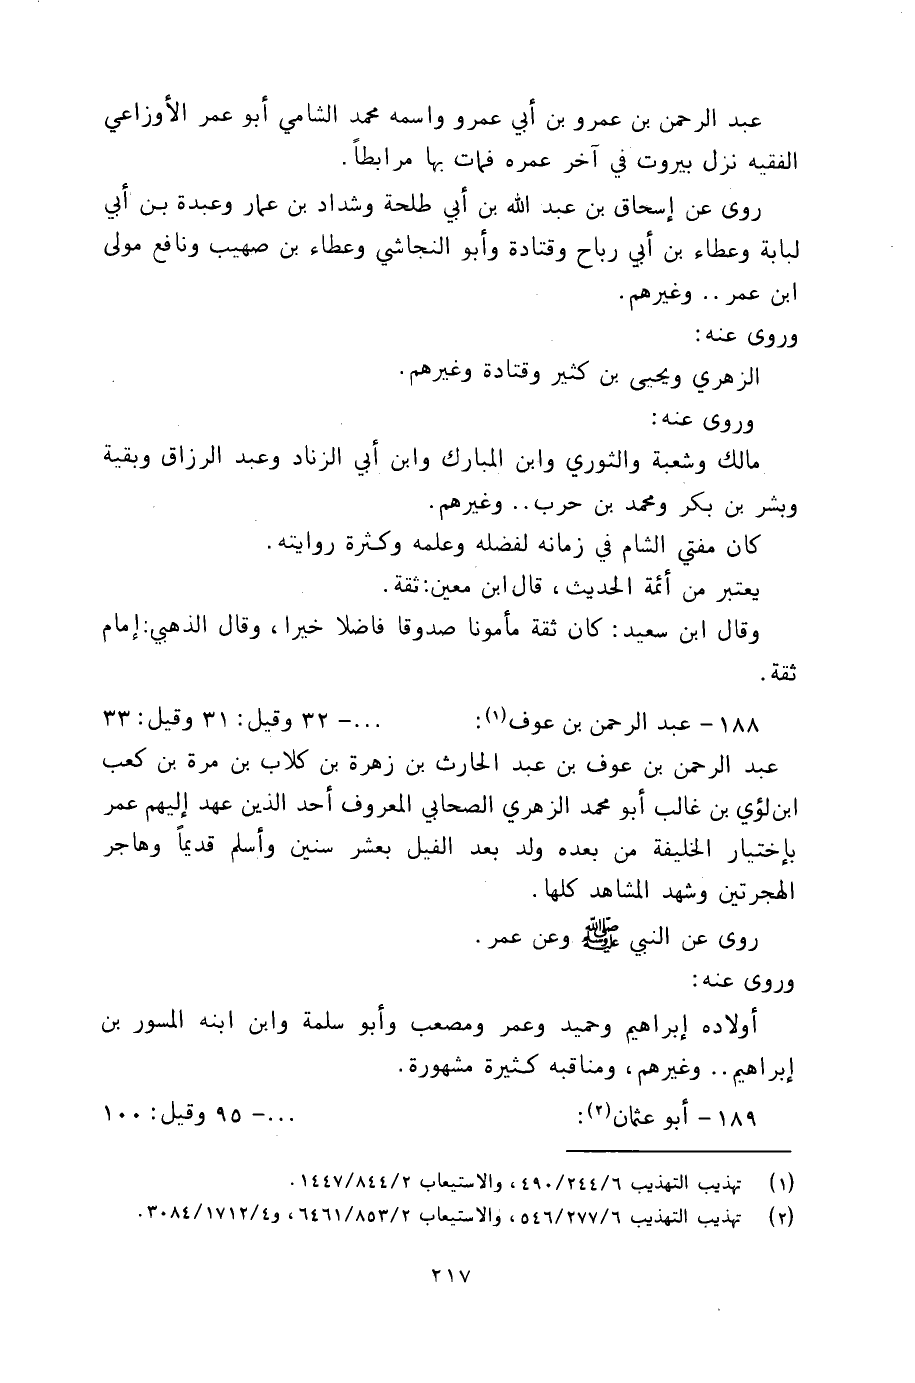 عبد الرحمن بن عمرو بن أبي عمرو واسمه محمد الشامي أبو عمر الأوزاعي
الفقيه نزل بيروت في آخر عمره فمات بها مرابطاً.
روى عن إسحاق بن عبد الله بن أبي طلحة وشداد بن عمار وعبدة بن أبي
لبابة وعطاء بن أبي رباح وقتادة وأبو النجاشي وعطاء بن صهيب ونافع مولى
ابن عمر .. وغيرهم.
وروى عنه:
الزهري ويحيى بن كثير وقتادة وغيرهم.
وروى عنه:
مالك وشعبة والثوري وابن المبارك وابن أبي الزناد وعبد الرزاق وبقية
وبشر بن بكر ومحمد بن حرب.. وغيرهم.
كان مفتي الشام في زمانه لفضله وعلمه وكثرة روايته.
يعتبر من أئمة الحديث، قال ابن معين: ثقة.
وقال ابن سعيد: كان ثقة مأمونا صدوقا فاضلا خيرا، وقال الذهبي: إمام
ثقة.
١٨٨ – عبد الرحمن بن عوف(١): ...– ٣٢ وقيل: ٣١ وقيل: ٣٣
عبد الرحمن بن عوف بن عبد الحارث بن زهرة بن كلاب بن مرة بن كعب
ابن لؤي بن غالب أبو محمد الزهري الصحابي المعروف أحد الذين عهد إليهم عمر
بإختيار الخليفة من بعده ولد بعد الفيل بعشر سنين وأسلم قديماً وهاجر
الهجرتين وشهد المشاهد كلها.
روى عن النبي ﷺ وعن عمر.
وروى عنه:
أولاده إبراهيم وحميد وعمر ومصعب وأبو سلمة وابن ابنه المسور بن
إبراهيم.. وغيرهم، ومناقبه كثيرة مشهورة.
١٨٩ – أبو عثمان(٢): ...– ٩٥ وقيل: ١٠٠
(١) تهذيب التهذيب ٤٩٠/٢٤٤/٦، والاستيعاب ١٤٤٧/٨٤٤/٢.
(٢) تهذيب التهذيب ٥٤٦/٢٧٧/٦، والاستيعاب ٦٤٦١/٨٥٣/٢، و٣٠٨٤/١٧١٢/٤.
٢١٧